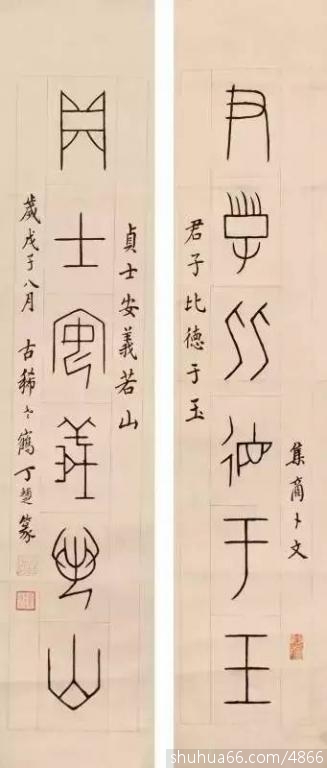 君子比德于王
集商卜文
君子比德于玉
貞士安義若山
貞士安義若山
歲戊子八月 古稀 鶴丁 篆
shuhua66.com/4866